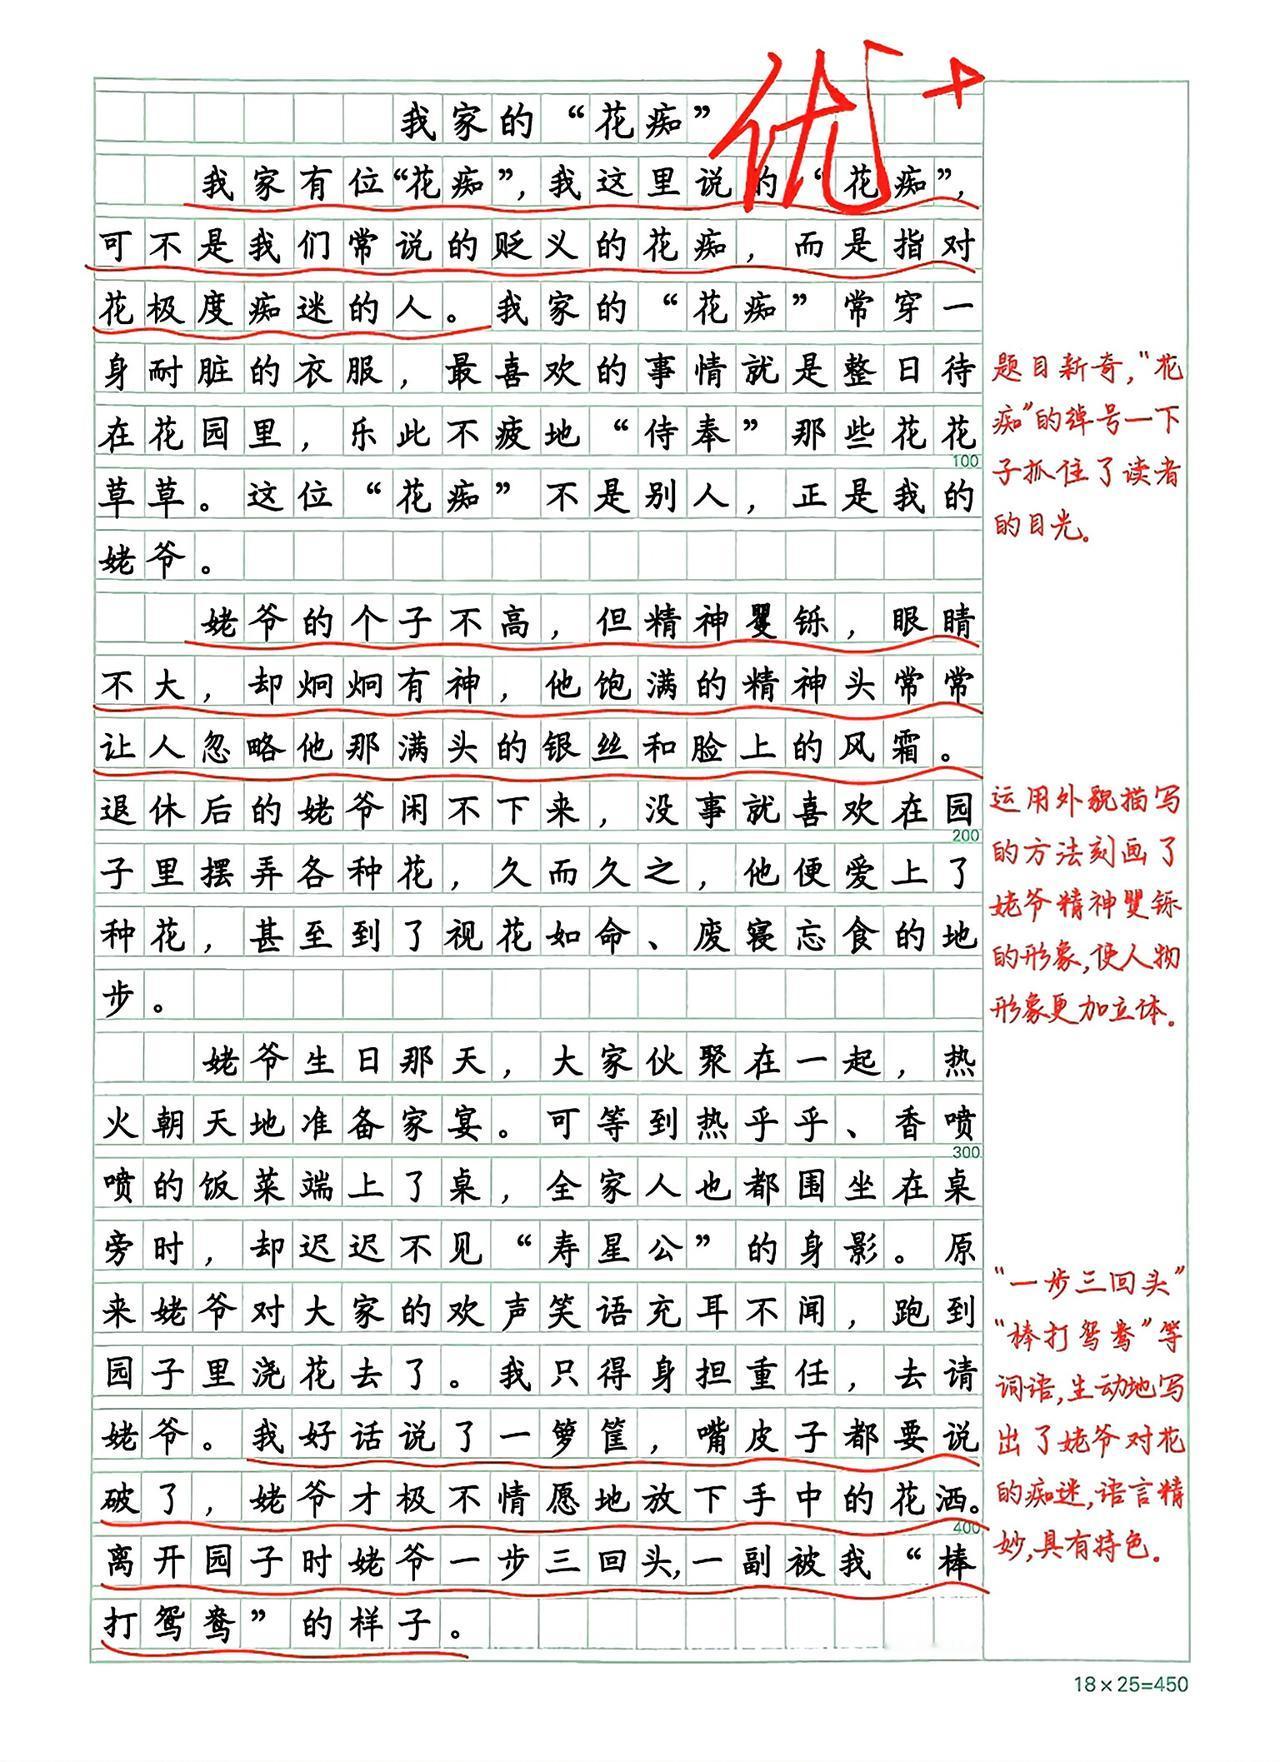 我家的“花痴”
优+
我家有位“花痴”，我这里说的“花痴”，
可不是我们常说的贬义的花痴，而是指对
花极度痴迷的人。我家的“花痴”常穿一
身耐脏的衣服，最喜欢的事情就是整日待
在花园里，乐此不疲地“侍奉”那些花花
100
草草。这位“花痴”不是别人，正是我的
姥爷。
姥爷的个子不高，但精神矍铄，眼睛
不大，却炯炯有神，他饱满的精神头常常
让人忽略他那满头的银丝和脸上的风霜。
退休后的姥爷闲不下来，没事就喜欢在园
200
子里摆弄各种花，久而久之，他便爱上了
种花，甚至到了视花如命、废寝忘食的地
步。
姥爷生日那天，大家伙聚在一起，热
火朝天地准备家宴。可等到热乎乎、香喷
300
喷的饭菜端上了桌，全家人也都围坐在桌
旁时，却迟迟不见“寿星公”的身影。原
来姥爷对大家的欢声笑语充耳不闻，跑到
园子里浇花去了。我只得身担重任，去请
姥爷。我好话说了一箩筐，嘴皮子都要说
破了，姥爷才极不情愿地放下手中的花洒。
400
离开园子时姥爷一步三回头，一副被我“棒
打鸳鸯”的样子。
题目新奇，“花
痴”的绰号一下
子抓住了读者
的目光。
运用外貌描写
的方法刻画了
姥爷精神矍铄
的形象，使人物
形象更加立体。
“一步三回头”
“棒打鸳鸯”等
词语，生动地写
出了姥爷对花
的痴迷，语言精
妙，具有特色。
18×25=450